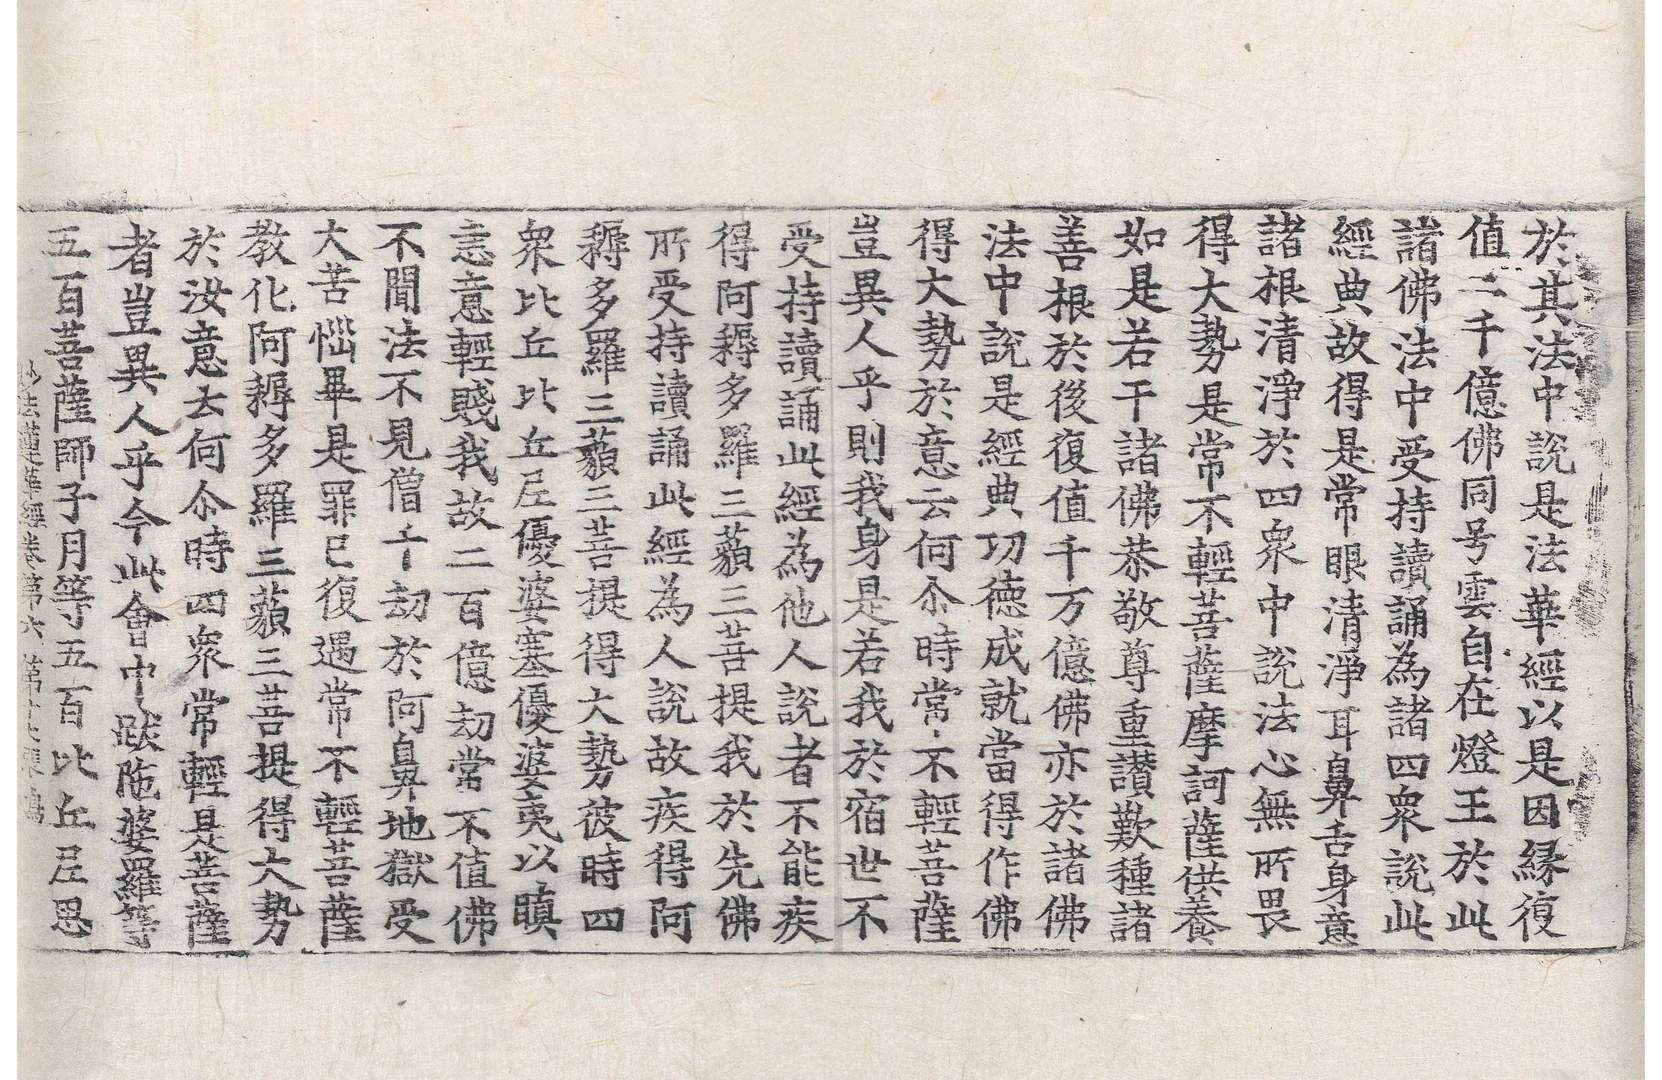 於其法中說是法華經以是因縁復
値二千億佛同号雲自在燈王於此
諸佛法中受持讀誦為諸四衆說此
經典故得是常眼清淨耳鼻舌身意
諸根清淨於四衆中說法心無所畏
得大勢是常不輕菩薩摩訶薩供養
如是若干諸佛恭敬尊重讃歎種諸
善根於後復値千万億佛亦於諸佛
法中說是經典功德成就當得作佛
得大勢於意云何尒時常不輕菩薩
豈異人乎則我身是若我於宿世不
受持讀誦此經為他人說者不能疾
得阿耨多羅三藐三菩提我於先佛
所受持讀誦此經為人說故疾得阿
耨多羅三藐三菩提得大勢彼時四
衆比丘比丘尼優婆塞優婆夷以瞋
恚意輕賤我故二百億劫常不値佛
不聞法不見僧千劫於阿鼻地獄受
大苦惱畢是罪已復遇常不輕菩薩
教化阿耨多羅三藐三菩提得大勢
於汝意云何尒時四衆常輕是菩薩
者豈異人乎今此會中跋陁婆羅等
五百菩薩師子月等五百比丘尼思
妙法蓮華經卷第六 第 張